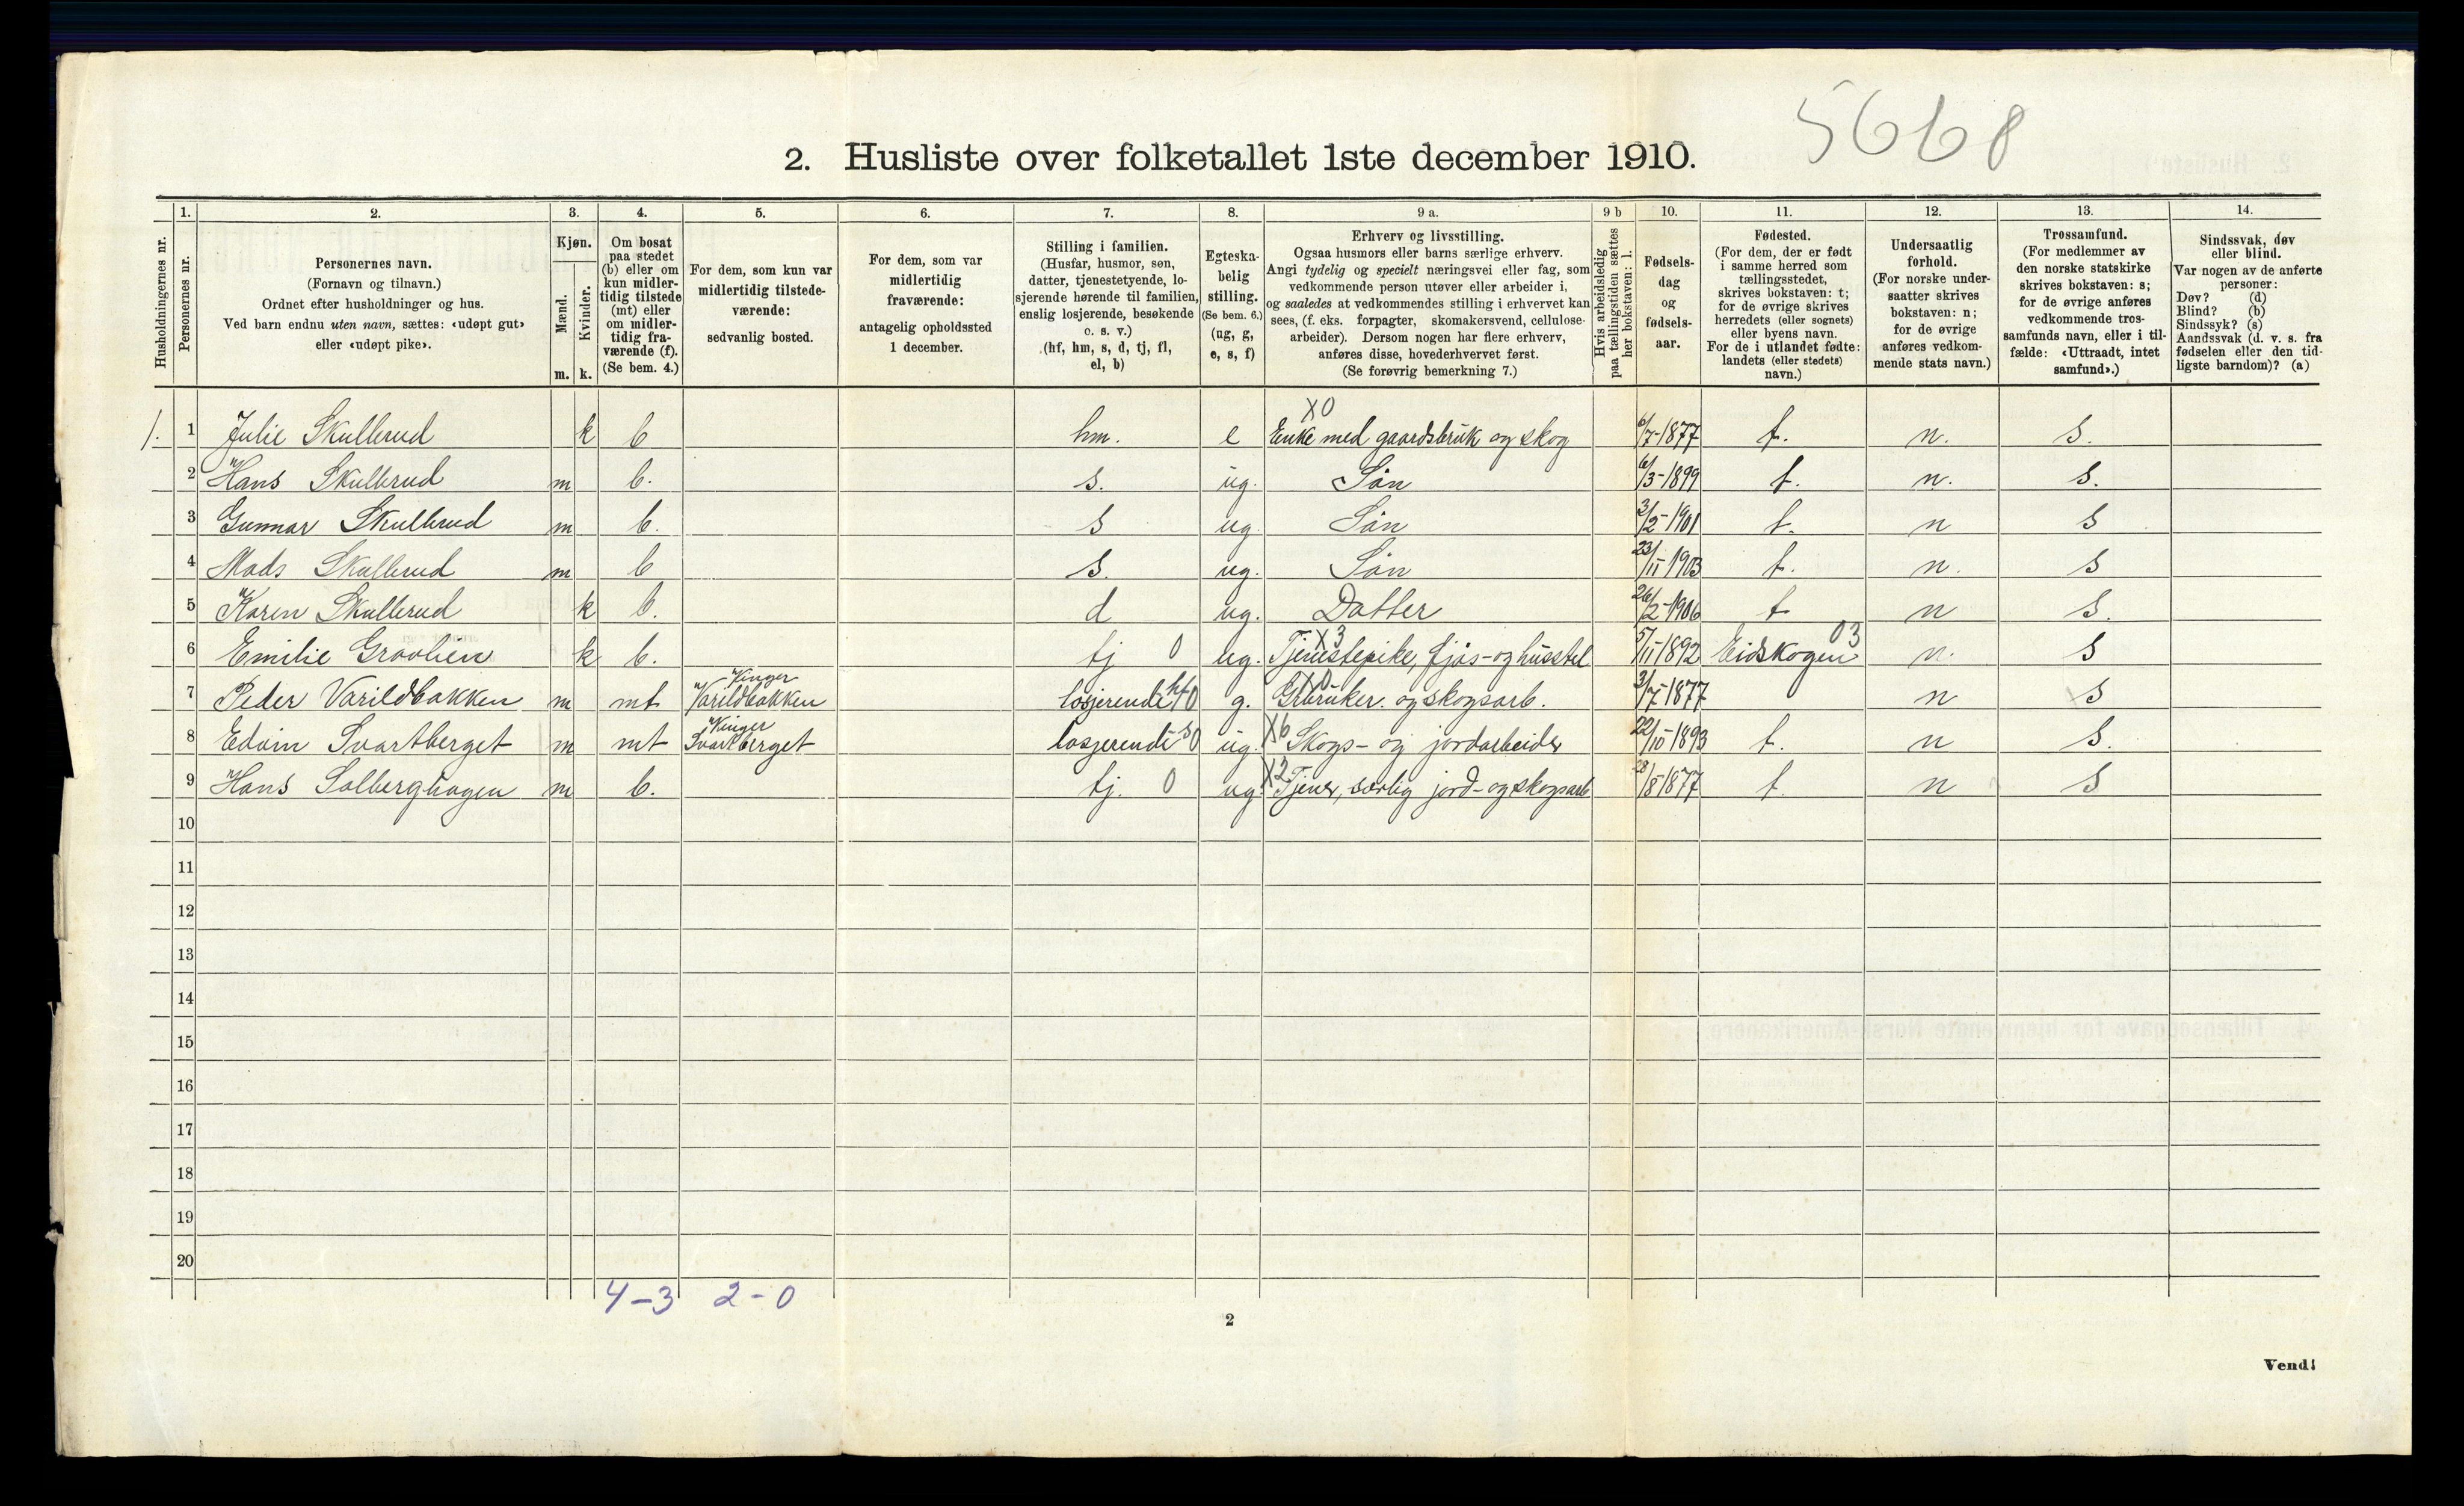 5668
2. Husliste over folketallet 1ste december 1910.
Husholdningernes nr.
1. Personernes nr.
2.
Personernes navn.
(Fornavn og tilnavn.)
Ordnet efter husholdninger og hus.
Ved barn endnu uten navn, sættes: «udøpt gut»
eller «udøpt pike».
3.
Kjøn.
Mænd. Kvinder.
m. k.
4.
Om bosat
paa stedet
(b) eller om
kun midler-
tidig tilstede
(mt) eller
om midler-
tidig fra-
værende (f).
(Se bem. 4.)
5.
For dem, som kun var
midlertidig tilstede-
værende:
sedvanlig bosted.
6.
For dem, som var
midlertidig
fraværende:
antagelig opholdssted
1 december.
7.
Stilling i familien.
(Husfar, husmor, søn,
datter, tjenestetyende, lo-
sjerende hørende til familien,
enslig losjerende, besøkende
o. s. v.)
(hf, hm, s, d, tj, fl,
el, b)
8.
Egteska-
belig
stilling.
(Se bem. 6.)
(ug, g,
e, s, f)
9 a.
Erhverv og livsstilling.
Ogsaa husmors eller barns særlige erhverv.
Angi tydelig og specielt næringsvei eller fag, som
vedkommende person utøver eller arbeider i,
og saaledes at vedkommendes stilling i erhvervet kan
sees, (f. eks. forpagter, skomakersvend, cellulose-
arbeider). Dersom nogen har flere erhverv,
anføres disse, hovederhvervet først.
(Se forøvrig bemerkning 7.)
9 b
Hvis arbeidsledig
paa tællingstiden sættes
her bokstaven: l.
10.
Fødsels-
dag
og
fødsels-
aar.
11.
Fødested.
(For dem, der er født
i samme herred som
tællingsstedet,
skrives bokstaven: t;
for de øvrige skrives
herredets (eller sognets)
eller byens navn.
For de i utlandet fødte:
landets (eller stedets)
navn.)
12.
Undersaatlig
forhold.
(For norske under-
saatter skrives
bokstaven: n;
for de øvrige
anføres vedkom-
mende stats navn.)
13.
Trossamfund.
(For medlemmer av
den norske statskirke
skrives bokstaven: s;
for de øvrige anføres
vedkommende tros-
samfunds navn, eller i til-
fælde: «Uttraadt, intet
samfund».)
14.
Sindssvak, døv
eller blind.
Var nogen av de anførte
personer:
Døv? (d)
Blind? (b)
Sindssyk? (s)
Aandssvak (d. v. s. fra
fødselen eller den tid-
ligste barndom)? (a)
X0
1. 1 Julie Skullerud k b hm. e Enke med gaardsbruk og skog 6/7-1877 t. n. s.
2 Hans Skullerud m b. s. ug. Sön 6/3-1899 t. n. s.
3 Gunnar Skullerud m b. s ug. Sön 3/2-1901 t. n s
4 Mads Skullerud m b s. ug. Sön 23/11 1903 t. n. s
5 Karen Skullerud k b. d ug. Datter 26/2-1906 t n s.
X3 03
6 Emilie Graolien k b. tj 0 ug. Tjenestepike, fjös- og husstel 5/11-1892 Eidskogen n. s
Vinger hf X0
7 Peder Varildbakken m mt Varildbakken losjerende 0 g. Gbruker. og skogsarb. 3/7-1877 n s
Vinger s X6
8 Edvin Svartberget m mt Svartberget losjerende 0 ug. Skogs- og jordarbeider 22/10-1893 t. n s.
X2
9 Hans Solberghagen m b. tj. 0 ug. Tjener, særlig jord- og skogsarb 28/8 1877 t. n s
10
11
12
13
14
15
16
17
18
19
20
4-3 2-0
2
Vend!